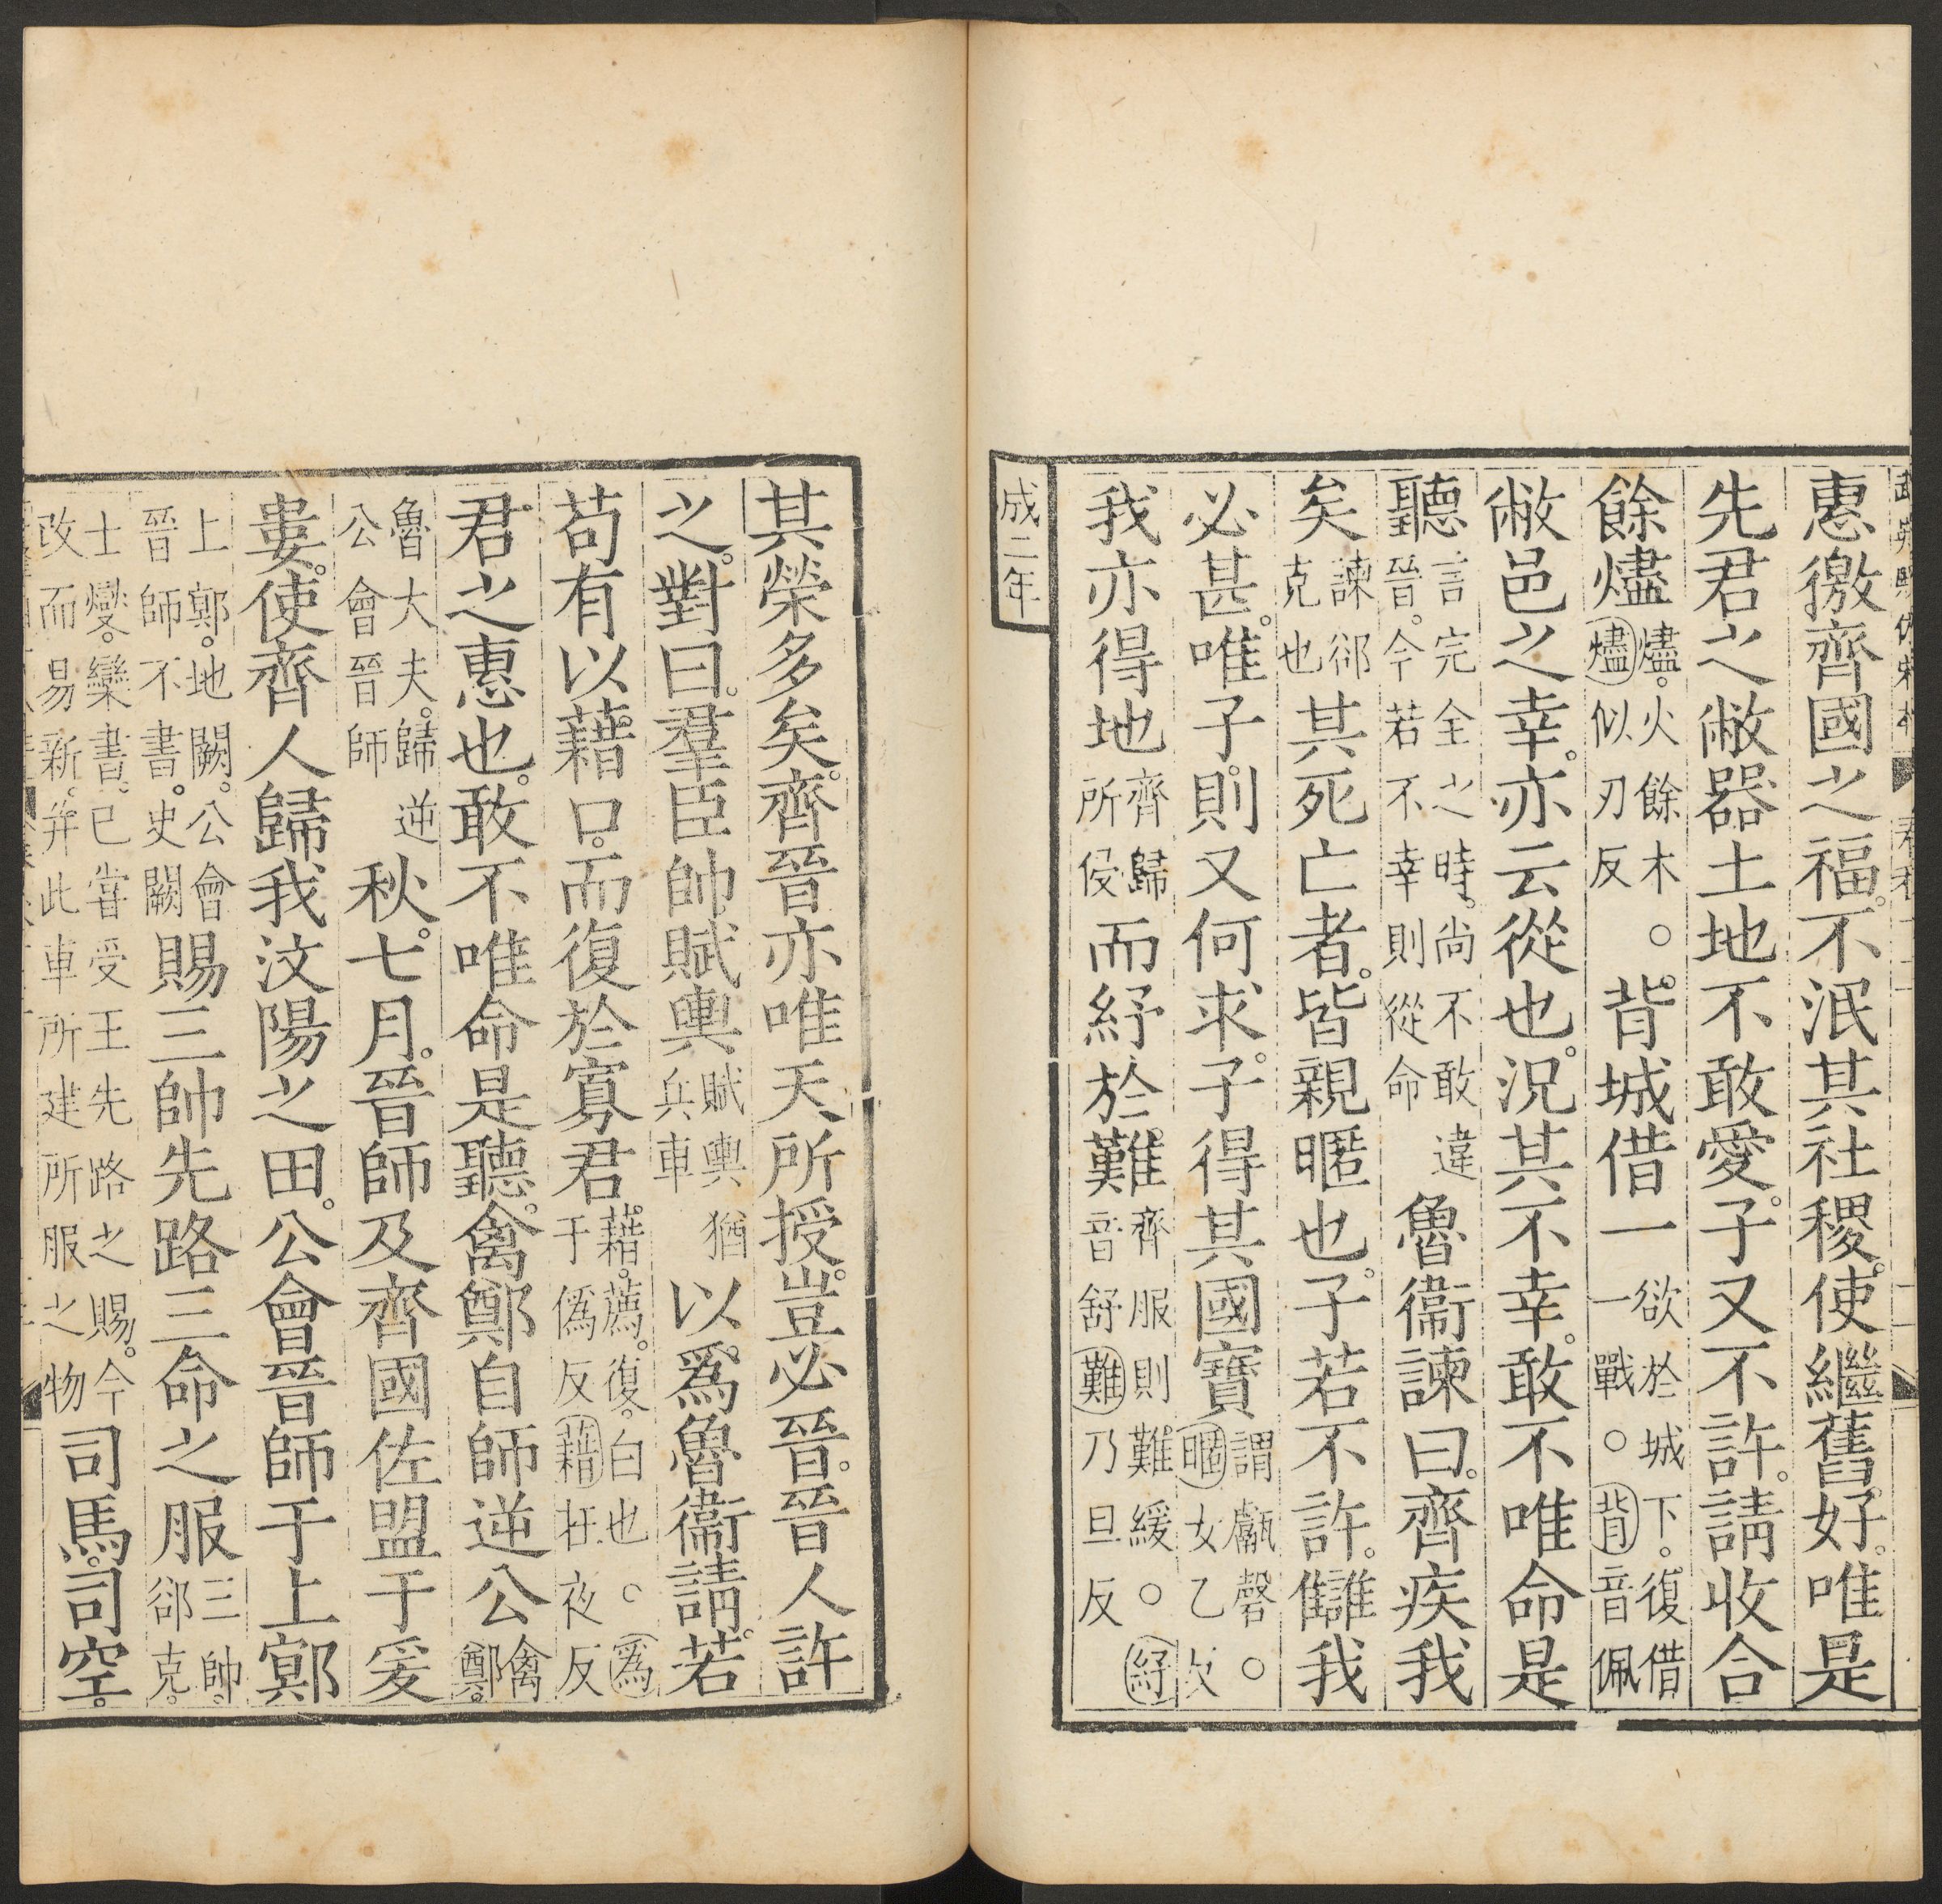 惠徼齊國之福。不泯其社稷。使繼舊好。唯是
先君之敝器土地不敢愛。子又不許。請收合
餘燼燼。火餘木。○燼似刃反背城借一欲於城下。復借一戰。○背音佩
敝邑之幸。亦云從也。況其不幸。敢不唯命是
聽言完全之時。尚不敢違晉。今若不幸則從命魯衞諫曰。齊疾我
矣諫郤克也其死亡者。皆親暱也。子若不許。讎我
必甚。唯子。則又何求。子得其國寶謂甗磬。○暱女乙反
我亦得地齊歸所侵而紓於難齊服則難緩。○紓音舒難乃旦反
成二年
其榮多矣。齊晉亦唯天所授。豈必晉。晉人許
之。對曰。羣臣帥賦輿賦輿猶兵車以爲魯衞請。若
苟有以藉口。而復於寡君。藉。薦。復。白也。○爲于僞反藉在夜反
君之惠也。敢不唯命是聽。禽鄭自師逆公禽鄭。
魯大夫。歸逆公會晉師秋。七月。晉師及齊國佐盟于爰
婁。使齊人歸我汶陽之田。公會晉師于上鄍
上鄍。地闕。公會晉師不書。史闕賜三帥先路三命之服三帥。郤克。
士燮。欒書。已嘗受王先路之賜。今改而易新。并此車所建所服之物司馬。司空。